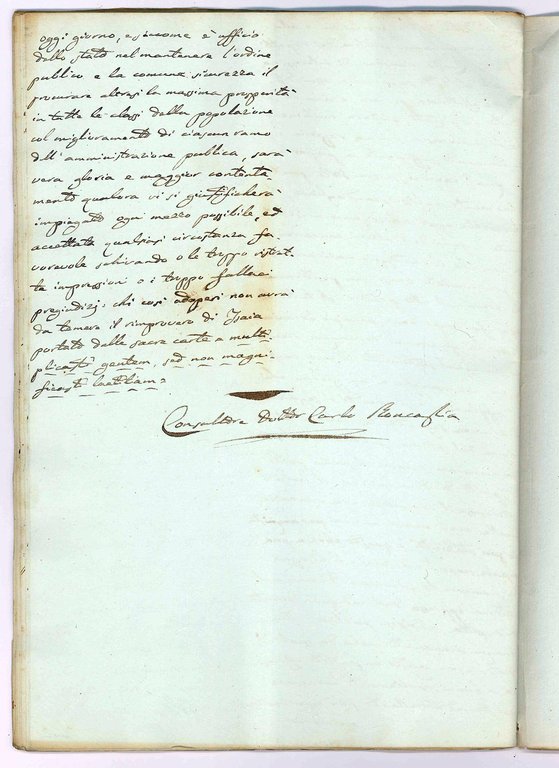 oggi giorno, e siccome è ufficio
dello stato nel mantenere l'ordine
publico e la comune sicurezza il
procurare altresì la massima prosperità
in tutte le classi della popolazione
col miglioramento di ciascun ramo
dell'amministrazione publica, sarà
vera gloria e maggior contenta-
mento qualora vi si giustificherà
impiegato ogni mezzo possibile, ed
accettata qualsiasi circostanza fa
vorevole schivando o le troppo istrat-
te impressioni o i troppo fallaci
pregiudizj: chi così adoperi non avrà
da temere il rimprovero di Isaia
portato dalle sacre carte = multi
plicasti gentem, sed non magni-
ficasti laetitiam =
Consultore Dottor Carlo Roncaglia